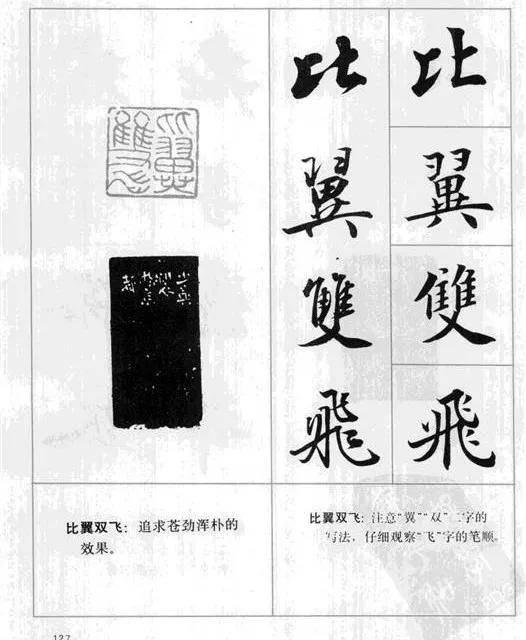 比翼雙飛
比翼雙飛
比翼雙飛
比翼双飞：追求苍劲浑朴的
效果。
比翼双飞：注意“翼”“双”二字的
写法，仔细观察“飞”字的笔顺。
127